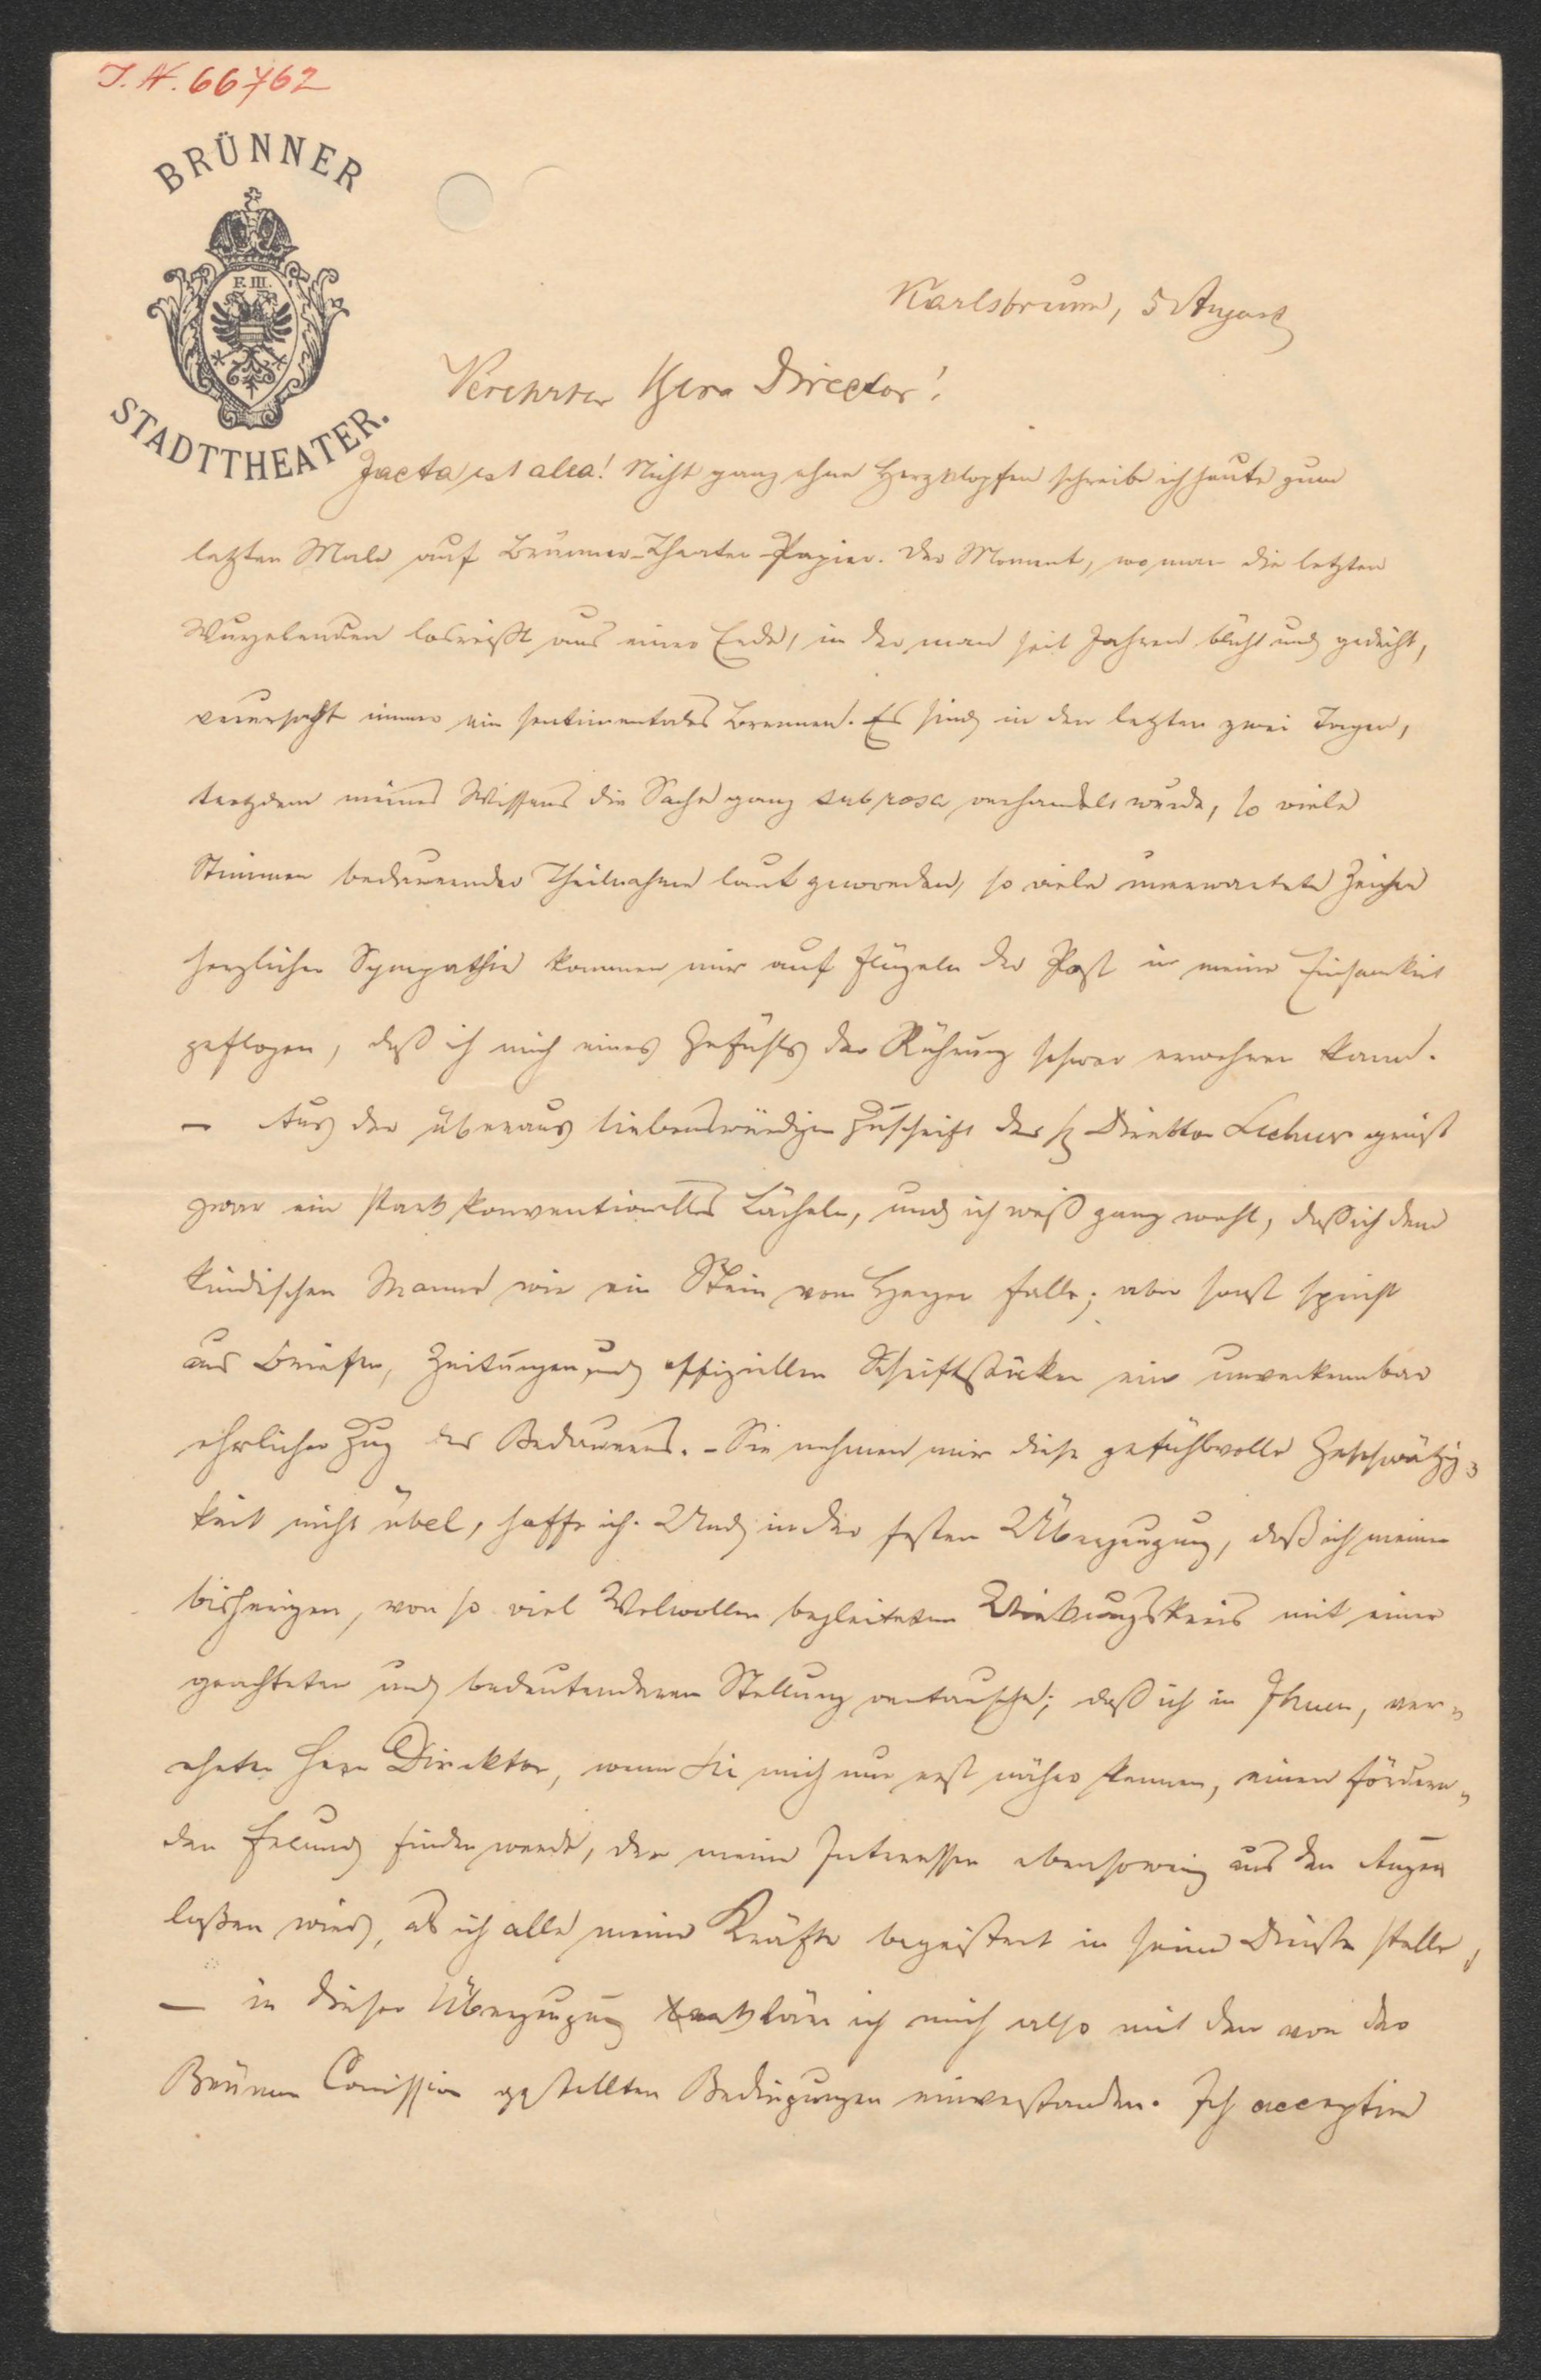 J. N. 66762
BRÜNNER
F. III.
STADTTHEATER.
Karlsbrunn, 5 August
Verehrter Herr Director!
Jacta est alea! Nicht ganz ohne Herzklopfen schreibe ich heute zum
letzten Male auf Brünner-Theater-Papier. Der Moment, wo man die letzten
Wurzelenden losreißt aus einer Erde, in der man seit Jahren blüht und gedeiht,
verursacht immer ein sentimentales Brennen. Es sind in den letzten zwei Tagen,
trotzdem meines Wissens die Sache ganz sub rosa verhandelt wurde, so viele
Stimmen bedauernder Theilnahme laut geworden, so viele unerwartete Zeichen
herzlicher Sympathie kommen mir auf Flügeln der Post in meine Einsamkeit
geflogen, daß ich mich eines Gefühls der Rührung schwer erwehren kann.
— Aus der überaus liebenswürdigen Zuschrift des H Direktor Lechner grinst
zwar ein stark konventionelles Lächeln, und ich weiß ganz wohl, daß ich dem
kindischen Manne wie ein Stein vom Herzen falle; aber sonst spricht
aus Briefen, Zeitungen und offiziellen Schriftstücken ein unverkennbar
ehrlicher Zug des Bedauerns. - Sie nehmen mir diese gefühlvolle Geschwätzig-
keit nicht übel, hoffe ich. Und in der festen Überzeugung, daß ich meinen
bisherigen, von so viel Wolwollen begleiteten Wirkungskreis mit einer
geachteten und bedeutenderen Stellung vertausche; daß ich in Ihnen, ver-
ehrter Herr Direktor, wenn Sie mich nur erst näher kennen, einen fördern-
den Freund finden werde, der meine Interessen ebensowenig aus den Augen
laßen wird, als ich alle meine Kräfte begeistert in seine Dienste stelle,
— in dieser Überzeugung erkläre ich mich also mit den von der
Brünner Comission gestellten Bedingungen einverstanden. Ich acceptire